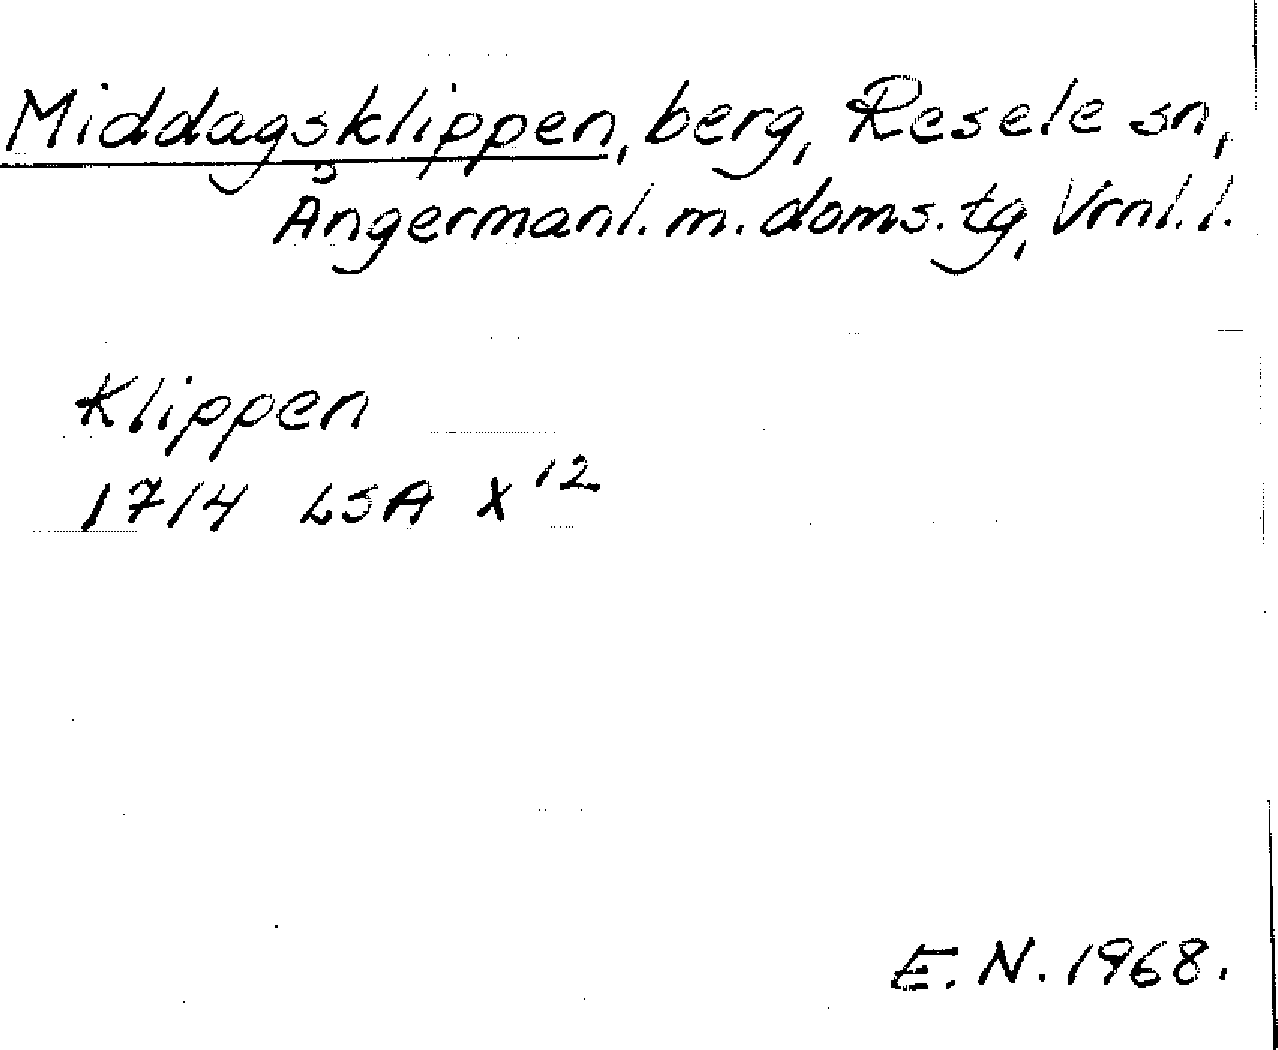 Middagsklippen, berg, Resele sn,
Ångermanl. m. doms. tg, Vrnl. l.
Klippen
1714 LSA X¹²
E. N. 1968.